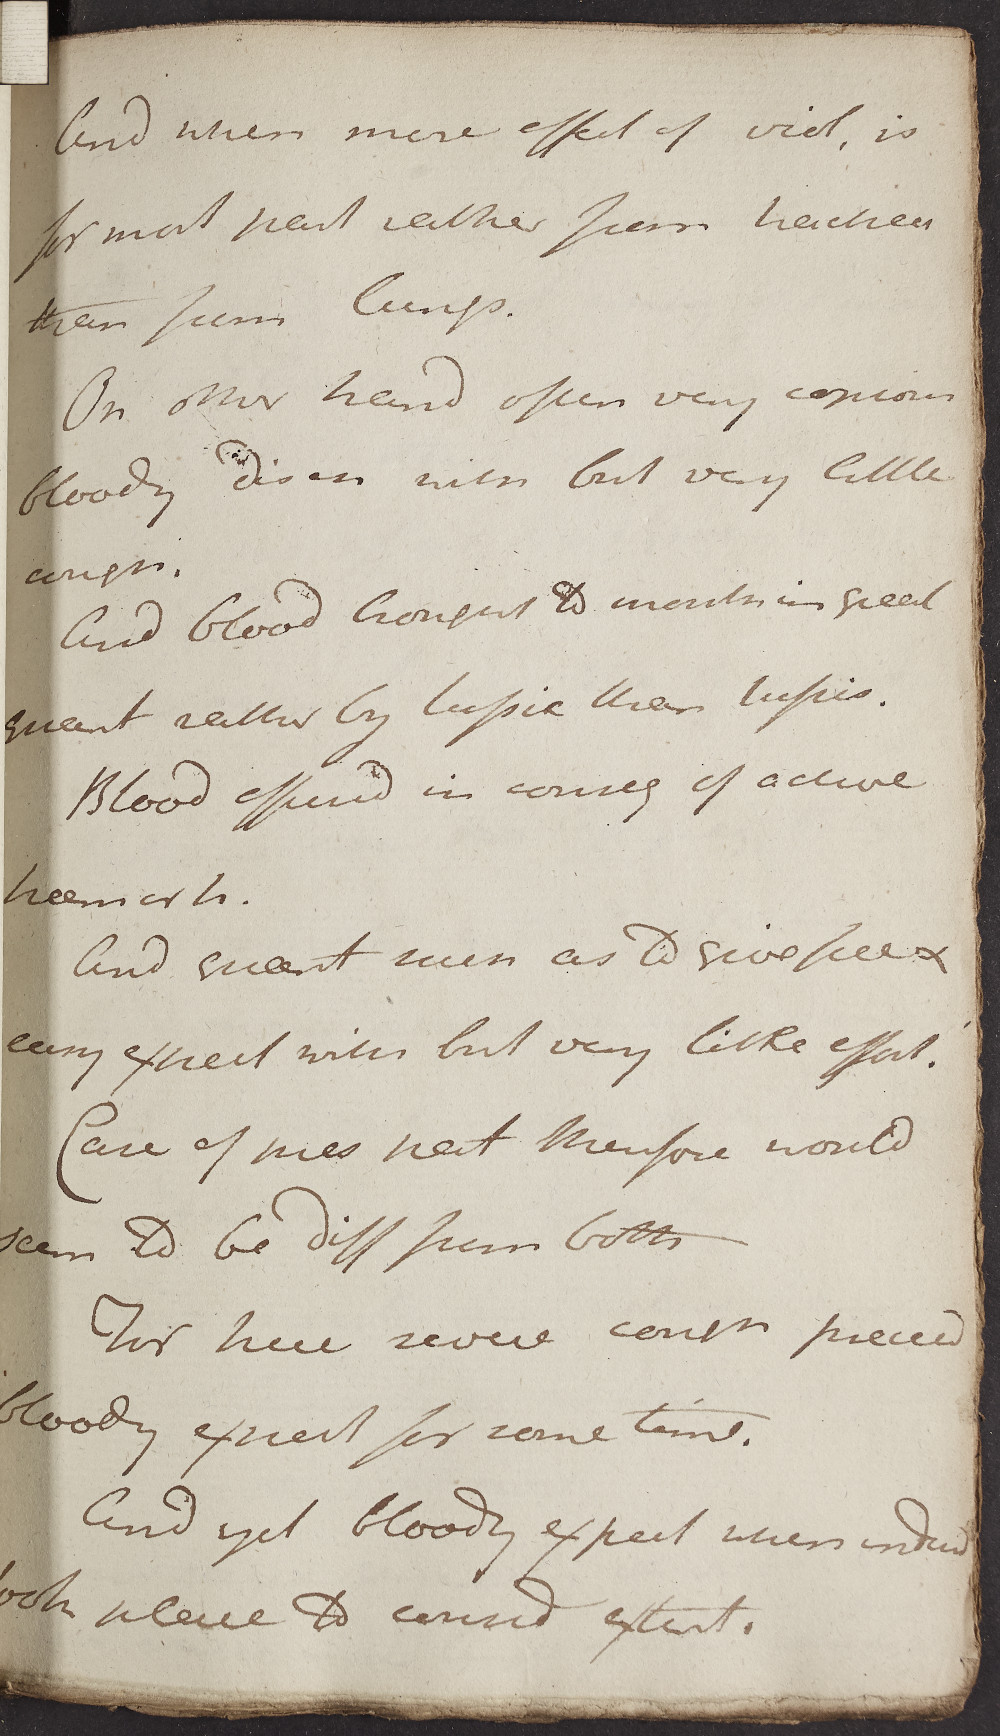 And when mere effect of viol. is
for most part rather from trachea
than from lungs.
On other hand often very copious
bloody disch with but very little
cough.
And blood brought to mouth in great
quant rather by tussic than tussis.
Blood effused in conseq of active
hæmorh.
And quant such as to give free &
easy expect with but very little effort.
Case of pres pat therefore would
seem to be diff from both
For here severe cough preced
bloody expect for some time.
And yet bloody expect when indeed
took place to consid extent.